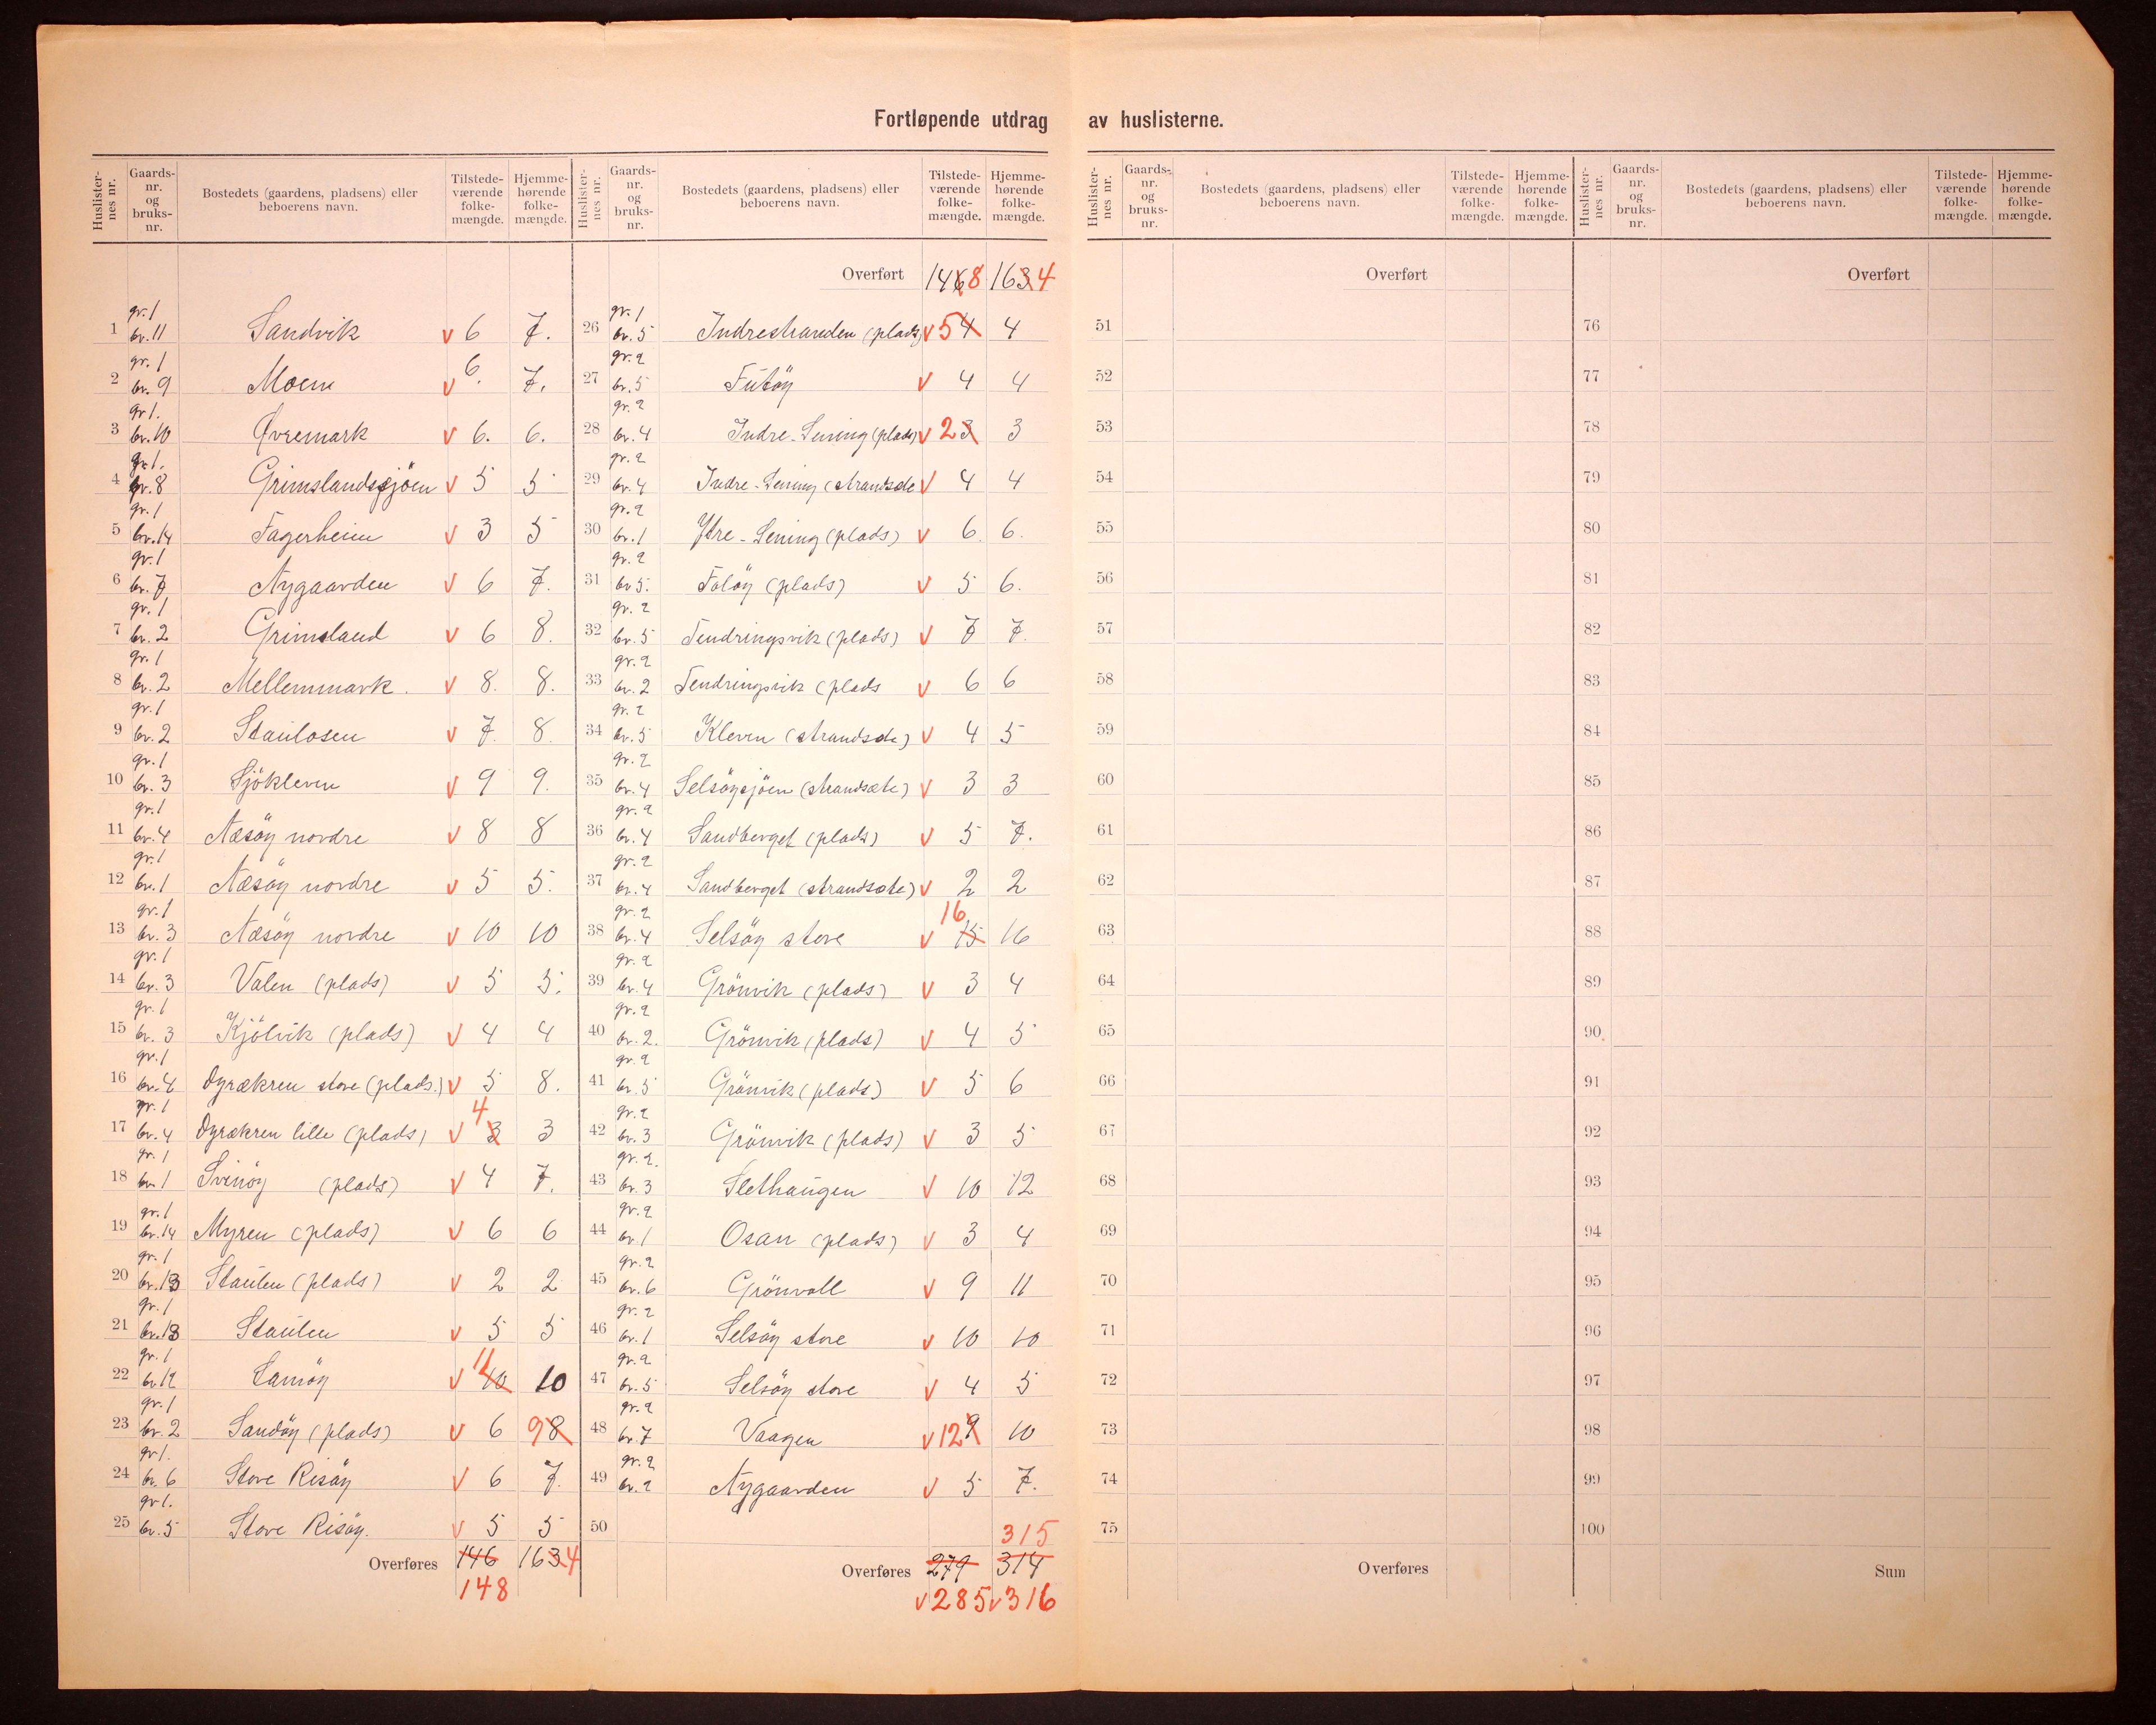 Fortløpende utdrag av huslisterne.
Huslisternes nr. Gaards-nr. og bruks-nr. Bostedets (gaardens, pladsens) eller beboerens navn. Tilstedeværende folkemængde. Hjemmehørende folkemængde.
1 gr. 1 br. 11 Sandvik v 6 7.
2 gr. 1 br. 9 Moem v 6. 7.
3 gr 1. br. 10 Øvremark v 6. 6.
4 gr 1. br. 8 Grimslandssjöen v 5 5
5 gr. 1 br. 14 Fagerheim v 3 5
6 gr. 1 br. 7 Nygaarden v 6 7.
7 gr. 1 br. 2 Grimsland v 6 8.
8 gr. 1 br. 2 Mellemmark. v 8. 8.
9 gr. 1 br. 2 Staulosen v 7. 8.
10 gr. 1 br. 3 Sjökleven v 9 9.
11 gr. 1 br. 4 Næsöy nordre v 8 8
12 gr. 1 br. 1 Næsöy nordre v 5 5.
13 gr. 1 br. 3 Næsöy nordre v 10 10
14 gr. 1 br. 3 Valen (plads) v 5 5.
15 gr. 1 br. 3 Kjölvik (plads) v 4 4
16 gr. 1 br. 4 Dyrækren store (plads.) v 5 8.
17 gr. 1 br. 4 Dyrækren lille (plads) v 4 3 3
18 gr. 1 br. 1 Svinöy (plads) v 4 7.
19 gr. 1 br. 14 Myren (plads) v 6 6
20 gr. 1 br. 13 Staulen (plads) v 2 2
21 gr. 1 br. 13 Staulen v 5 5
22 gr. 1 br. 12 Lamöy v 11 10 10
23 gr. 1 br. 2 Sandöy (plads) v 6 9 8
24 gr 1. br. 6 Store Risöy v 6 7.
25 gr 1. br. 5 Store Risöy. v 5 5
Overføres 146 163 4
148
Huslisternes nr. Gaards-nr. og bruks-nr. Bostedets (gaardens, pladsens) eller beboerens navn. Tilstedeværende folkemængde. Hjemmehørende folkemængde.
Overført 146 8 163 4
26 gr. 1 br. 5 Indrestranden (plads) v 5 4 4
27 gr. 2 br. 5 Futöy v 4 4
28 gr. 2 br. 4 Indre-Lening (plads) v 2 3 3
29 gr. 2 br. 4 Indre-Lening (strandsæte v 4 4
30 gr. 2 br. 1 Ytre-Lening (plads) v 6. 6.
31 gr. 2 br 5. Foløy (plads) v 5 6.
32 gr. 2 br. 5 Tendringsvik (plads) v 7 7.
33 gr. 2 br. 2 Tendringsvik (plads v 6 6
34 gr. 2 br. 5 Kleven (strandsæte) v 4 5
35 gr. 2 br. 4 Selsöysjöen (strandsæte) v 3 3
36 gr. 2 br. 4 Sandberget (plads) v 5 7.
37 gr. 2 br. 4 Sandberget (strandsæte) v 2 2
38 gr. 2 br. 4 Selsöy store v 16 15 16
39 gr. 2 br. 4 Grönvik (plads) v 3 4
40 gr. 2 br. 2. Grönvik (plads) v 4 5
41 gr. 2 br. 5 Grönvik (plads) v 5 6
42 gr. 2 br. 3 Grönvik (plads) v 3 5
43 gr. 2. br. 3 Slethaugen v 10 12
44 gr. 2 br. 1 Osan (plads) v 3 4
45 gr. 2 br. 6 Grönvoll v 9 11
46 gr. 2 br. 1 Selsöy store v 10 10
47 gr. 2 br. 5 Selsöy store v 4 5
48 gr. 2 br. 7 Vaagen v 12 9 10
49 gr. 2 br. 2 Nygaarden v 5 7.
50 315
Overføres 279 314
v 285 v 316
Huslisternes nr. Gaards-nr. og bruks-nr. Bostedets (gaardens, pladsens) eller beboerens navn. Tilstedeværende folkemængde. Hjemmehørende folkemængde.
Overført
51
52
53
54
55
56
57
58
59
60
61
62
63
64
65
66
67
68
69
70
71
72
73
74
75
Overføres
Huslisternes nr. Gaards-nr. og bruks-nr. Bostedets (gaardens, pladsens) eller beboerens navn. Tilstedeværende folkemængde. Hjemmehørende folkemængde.
Overført
76
77
78
79
80
81
82
83
84
85
86
87
88
89
90
91
92
93
94
95
96
97
98
99
100
Sum